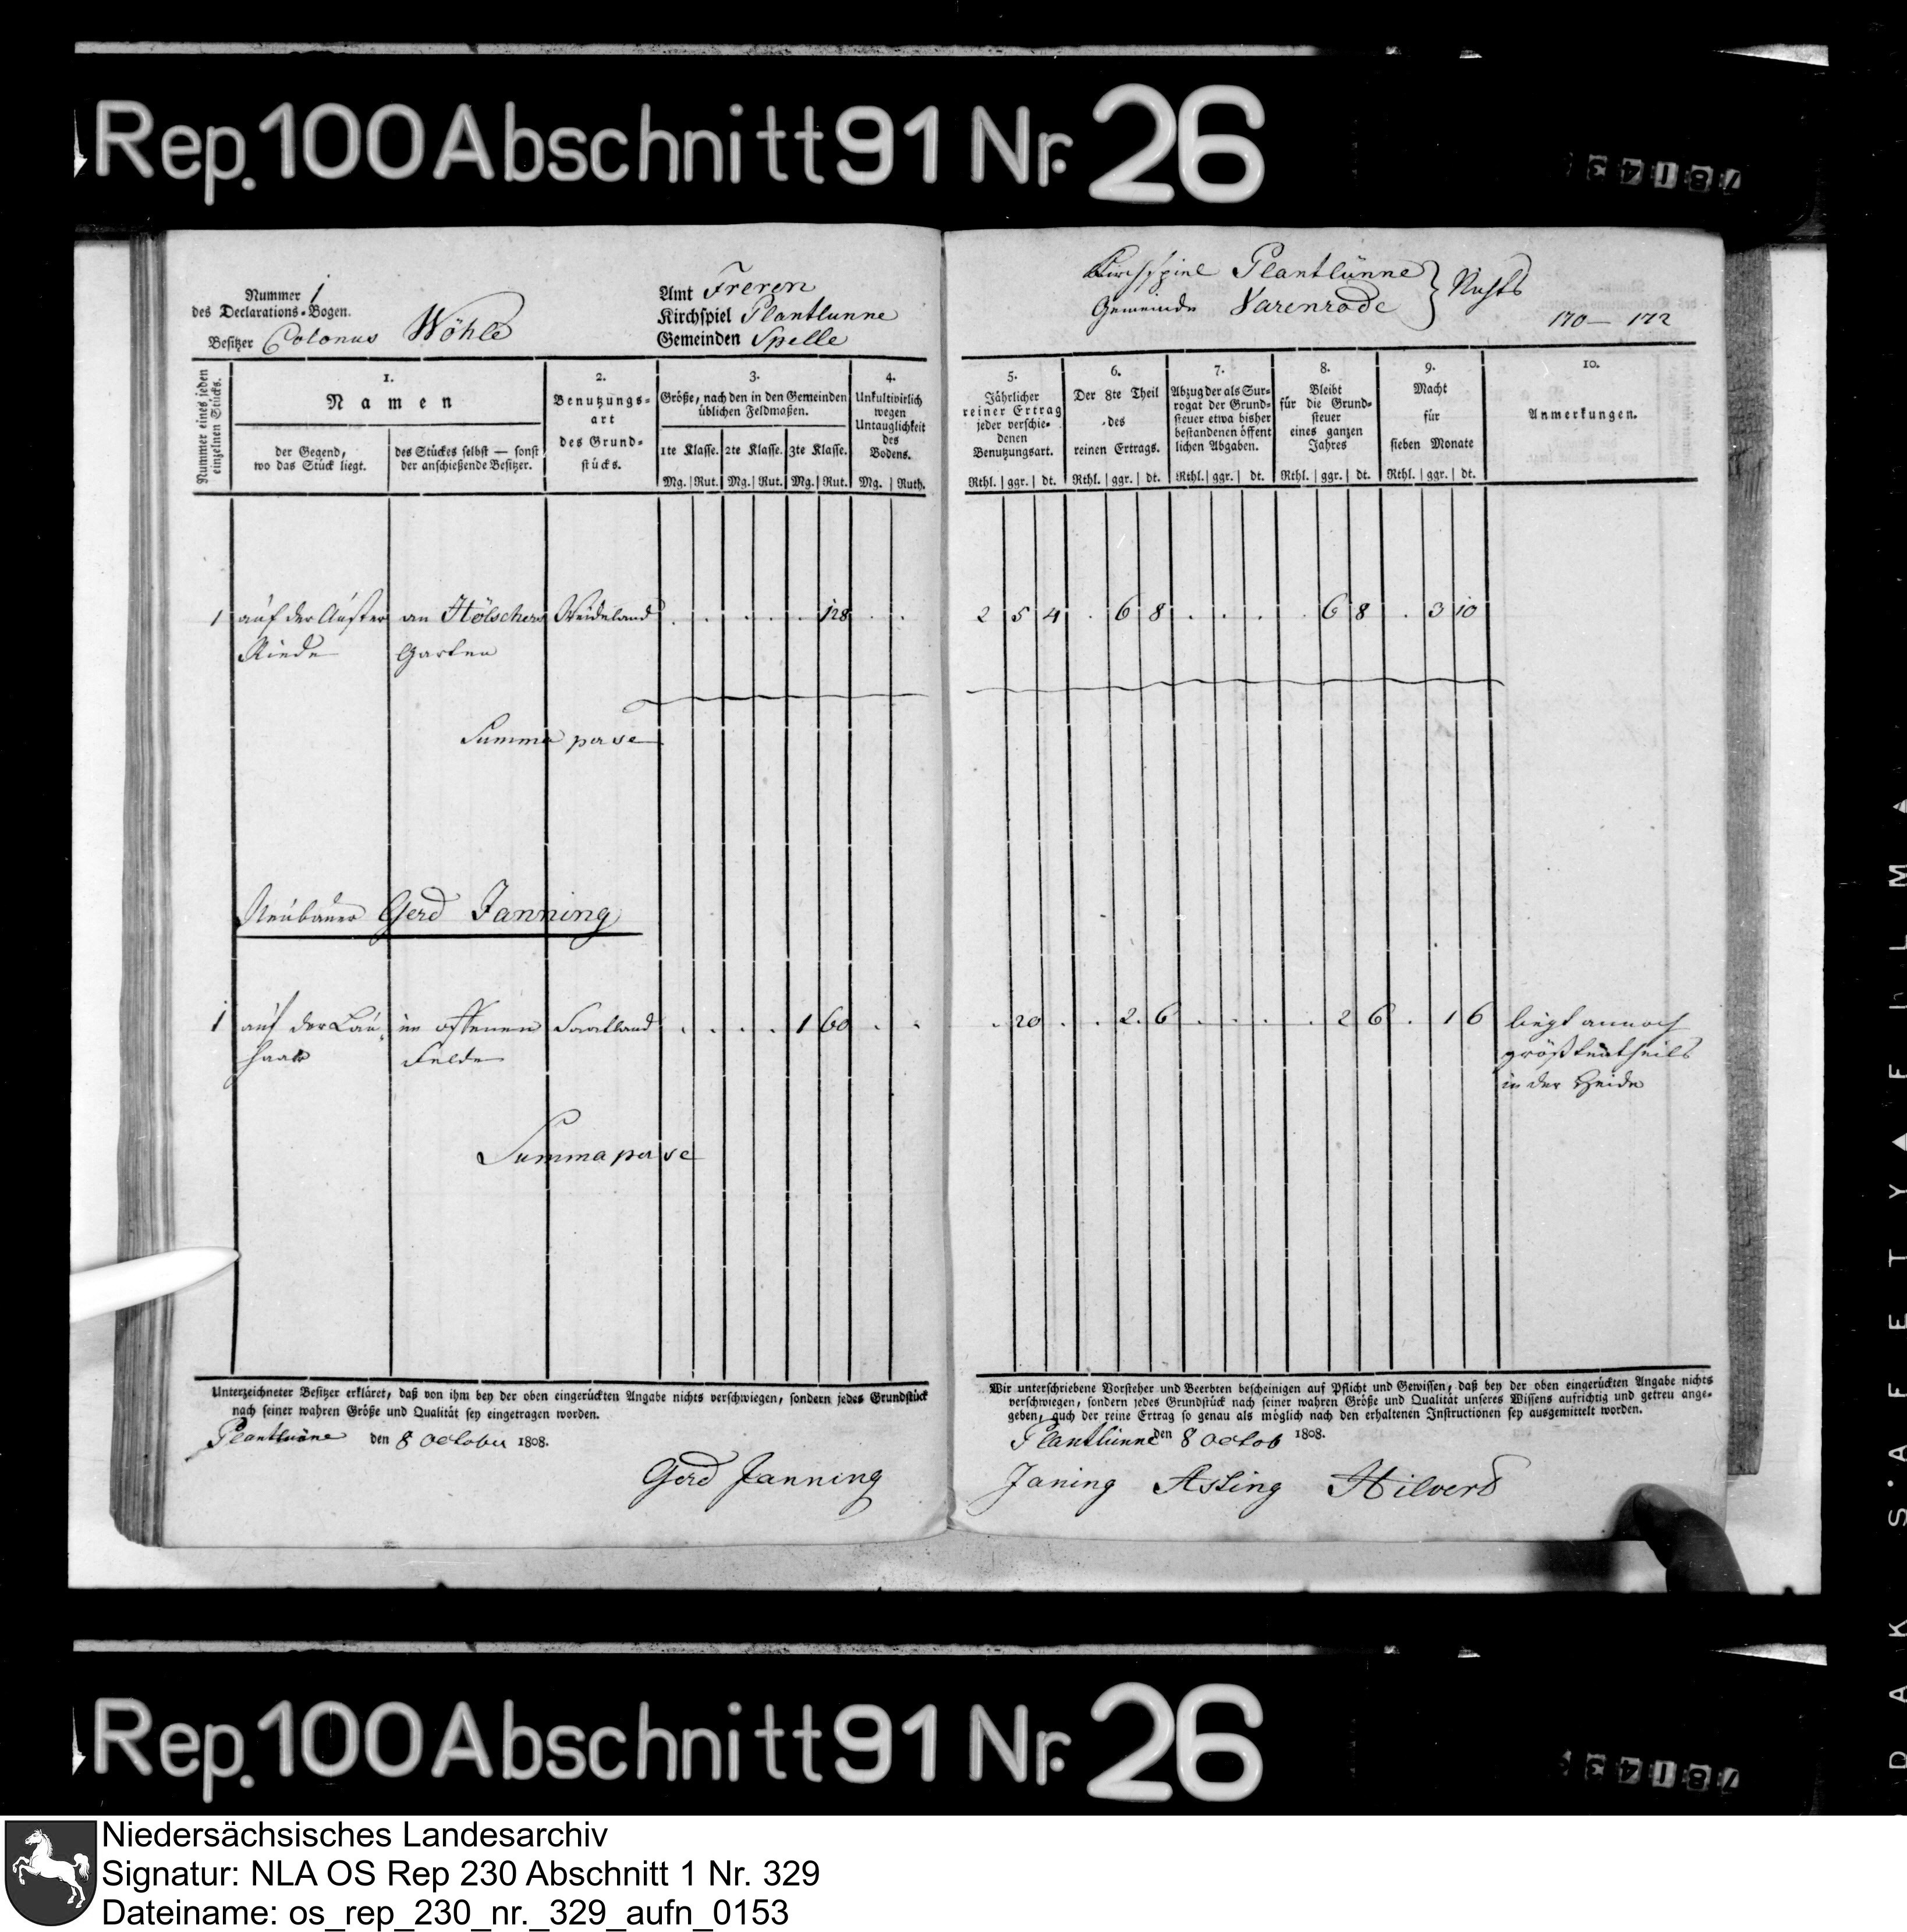 Rep. 100 Abschnitt 91 Nr. 26
Nummer 1
des Declarations-Bogen.
Besitzer Colonus Wöhle
Amt Freren
Kirchspiel Plantlunne
Gemeinden Spelle
Kirchspiel Plantlünne
Gemeinde Varenrode
170 — 172
Nummer eines jeden einzelnen Stücks.
1.
Namen
der Gegend, wo das Stück liegt.
des Stückes selbst — sonst der anschießende Besitzer.
2.
Benutzungs-
art
des Grund-
stücks.
3.
Größe, nach den in den Gemeinden
üblichen Feldmaßen.
1te Klasse. 2te Klasse. 3te Klasse.
Mg. Rut. Mg. Rut. Mg. Rut.
4.
Unkultivirlich
wegen
Untauglichkeit
des
Bodens.
Mg. Ruth.
5.
Jährlicher
reiner Ertrag
jeder verschie-
denen
Benutzungsart.
Rthl. ggr. dt.
6.
Der 8te Theil
des
reinen Ertrags.
Rthl. ggr. dt.
7.
Abzug der als Sur-
rogat der Grund-
steuer etwa bisher
bestandenen öffent
lichen Abgaben.
Rthl. ggr. dt.
8.
Bleibt
für die Grund-
steuer
eines ganzen
Jahres
Rthl. ggr. dt.
9.
Macht
für
sieben Monate
Rthl. ggr. dt.
10.
Anmerkungen.
1 auf der an Hölschers Weideland . . . . . 128 . . 2 5 4 . 6 8 . . . . 6 8 . 3 10
Riede Garten
Summa per se
Neubauer Gerd Janning
1 auf der im offenen Saatland . . . . 1 60 . . . 20 . . 2 6 . . . . 2 6 . 1 6 liegt annoch
Felde größtentheils
in der Heide
Summa per se
Unterzeichneter Besitzer erkläret, daß von ihm bey der oben eingerückten Angabe nichts verschwiegen, sondern jedes Grundstück
nach seiner wahren Größe und Qualität sey eingetragen worden.
Plantlünne den 8 October 1808.
Gerd Janning
Wir unterschriebene Vorsteher und Beerbten bescheinigen auf Pflicht und Gewissen, daß bey der oben eingerückten Angabe nichts
verschwiegen, sondern jedes Grundstück nach seiner wahren Größe und Qualität unseres Wissens aufrichtig und getreu ange-
geben, auch der reine Ertrag so genau als möglich nach den erhaltenen Instructionen sey ausgemittelt worden.
Plantlünne den 8 Octob 1808.
Janing Assing Hilvers
Rep. 100 Abschnitt 91 Nr. 26
Niedersächsisches Landesarchiv
Signatur: NLA OS Rep 230 Abschnitt 1 Nr. 329
Dateiname: os_rep_230_nr._329_aufn_0153